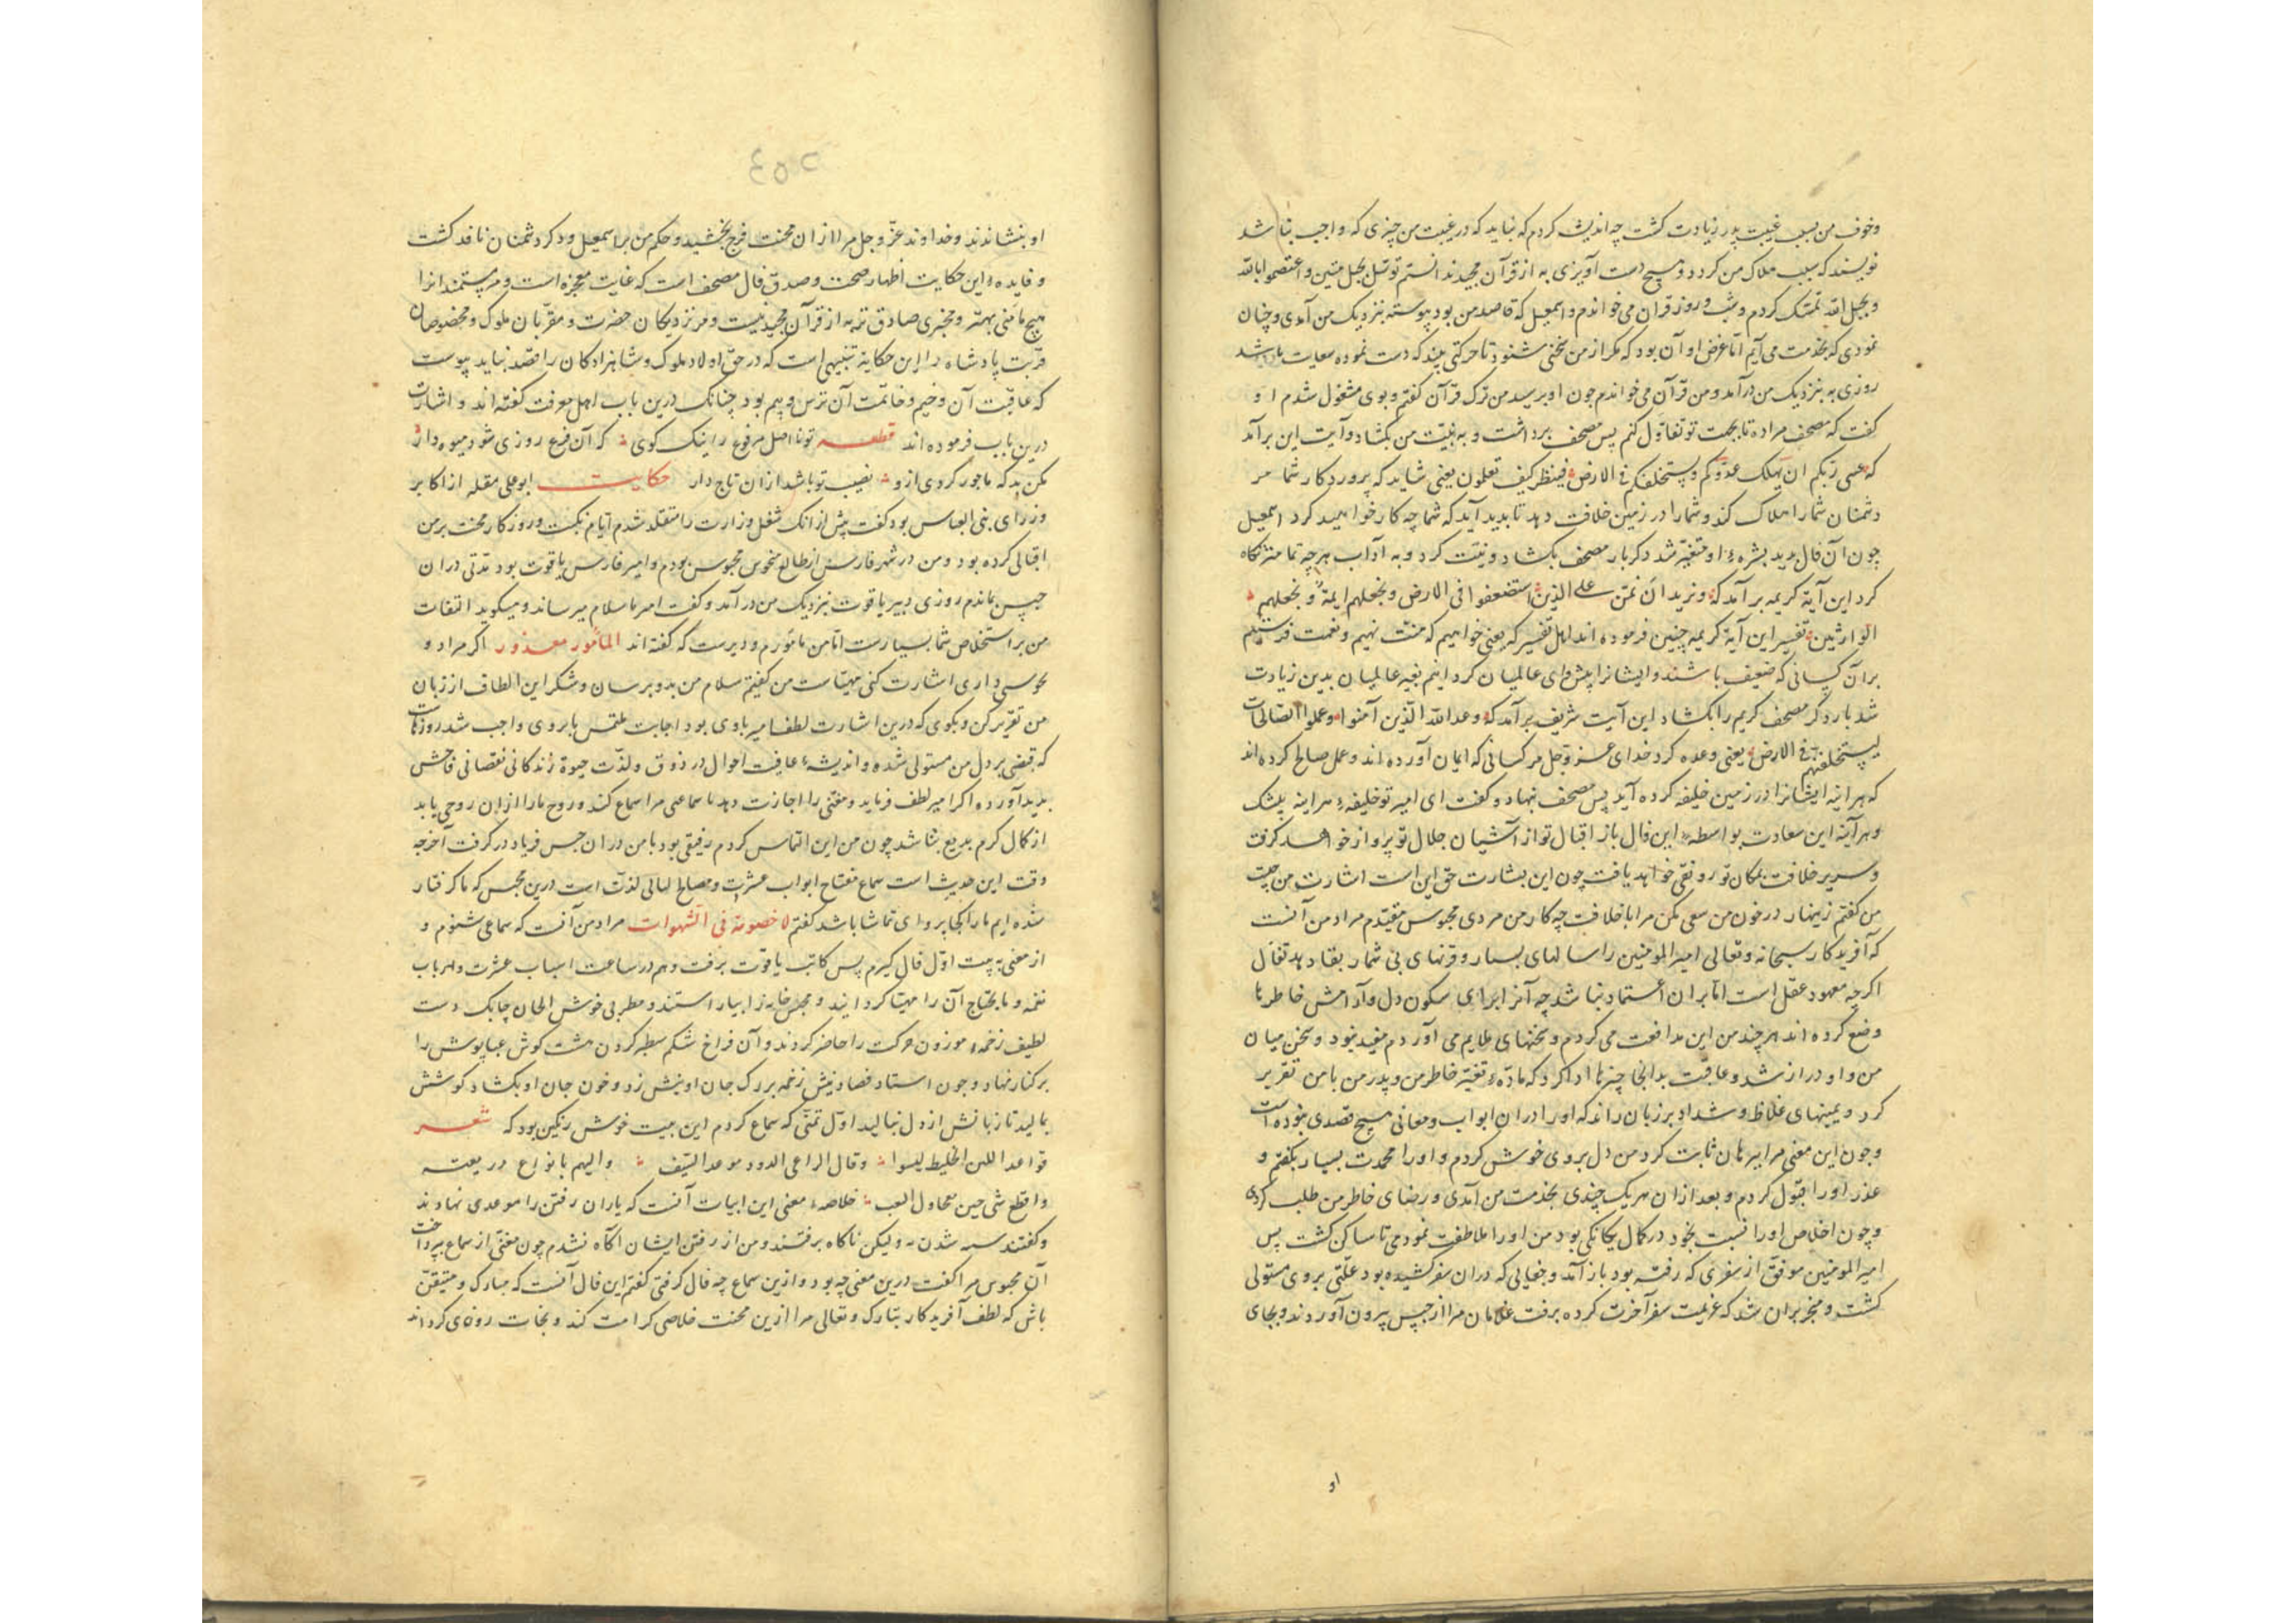 وخوف من بسبب غیبت پدر زیادت کشت چه اندیشه کردم که نباید که در غیبت من چیزی که واجب نباشد
نویسند که سبب هلاک من کردد و هیچ دست آویزی به از قرآن مجید ندانستم توسل بحبل متین واعتصموا بالله
و بحبل الله تمسک کردم و شب و روز قران می خواندم و اسمعیل که قاصد من بود پیوسته بنزدیک من آمدی و چنان
نمودی که بخدمت می آیم اما غرض او آن بود که مکر از من سخنی شنود تا حرکتی بیند که دست نموده سعایت باشد
روزی به نزدیک من در آمد و من قرآن می خواندم جون او برسید من ترک قرآن کفتم و بوی مشغول شدم او
کفت که مصحف مرا ده تا بجهت تو تفاؤل کنم پس مصحف برداشت و به نیت من بکشاد و آیت این برآمد
که عسی ربکم ان یهلک عدوکم ویستخلفکم فی الارض فینظر کیف تعلمون یعنی شاید که پروردکار شما مر
دشمنان شما را هلاک کند و شما را در زمین خلافت دهد تا بدید آید که شما چه کار خواهید کرد اسمعیل
چون آن فال بدید بشرهٔ او متغیر شد دکر بار مصحف بکشاد و نیت کرد و به آداب هر چه تمامتر نکاه
کرد این آیة کریمه برآمد که ونرید ان نمن علی الذین استضعفوا فی الارض ونجعلهم ایمة ونجعلهم
الوارثین تفسیر این آیة کریمه چنین فرموده اند اهل تفسیر که یعنی خواهیم که منت نهیم و نعمت فرستیم
بر آن کسانی که ضعیف باشند و ایشانرا پیشوای عالمیان کردانیم بقیه عالمیان بدین زیادت
شد بار دکر مصحف کریم را بکشاد این آیت شریف برآمد که وعد الله الذین آمنوا وعملوا الصالحات
لیستخلفنهم فی الارض یعنی وعده کرد خدای عز و جل مر کسانی که ایمان آورده اند و عمل صالح کرده اند
که هر اینه ایشانرا در زمین خلیفه کرده آید پس مصحف بنهاد و کفت ای امیر تو خلیفهٔ هر اینه بیشک
و هر آینه این سعادت بواسطهٔ این فال باز اقبال تو از آشیان جلال تو پرواز خواهد کرفت
و سریر خلافت بمکان تو رونقی خواهد یافت چون این بشارت حق این است اشارت من چیست
من کفتم زینهار در خون من سعی مکن مرا با خلافت چه کار من مردی محبوس مقیدم مراد من آنست
که آفریدکار سبحانه و تعالی امیر المؤمنین را سالهای بسیار و قرنهای بی شمار بقا دهد تفال
اکرچه معهود عقل است اما بران اعتماد نباشد چه آنرا برای سکون دل و آرامش خاطرها
وضع کرده اند هر چند من این مدافعت می کردم و سخنهای ملایم می آوردم مفید نبود و سخن میان
من و او دراز شد و عاقبت بدانجا چیزها ادا کرد که مادهٔ تغیر خاطر من و پدر من با من تقریر
کرد و یمینهای غلاظ و شداد بر زبان راند که او را در ان ابواب و معانی هیچ قصدی نبوده است
و جون این معنی مرا ببرهان ثابت کرد من دل بروی خوش کردم و او را محمدت بسیار بکفتم و
عذر او را قبول کردم و بعد از ان هر یک چندی بخدمت من آمدی و رضای خاطر من طلب کردی
و چون اخلاص او را نسبت بخود در کمال یکانکی بود من او را ملاطفت نمودمی تا ساکن کشت پس
امیر المومنین موفق از سفری که رفته بود باز آمد و جفایی که در ان سفر کشیده بود علتی بروی مستولی
کشت و منجر بران شد که عزیمت سفر آخرت کرده برفت غلامان مرا از حبس بیرون آوردند و بجای
او
٢٥٤
او بنشاندند و خداوند عز و جل مرا از ان محنت فرج بخشید و حکم من بر اسمعیل و دکر دشمنان نافذ کشت
و فایدهٔ این حکایت اظهار صحت و صدق فال مصحف است که غایت معجزه است و مر مستمندانرا
هیچ مامنی بهتر و مخبری صادق تر به از قرآن مجید نیست و مر نزدیکان حضرت و مقربان ملوک و مخصوصان
قربت پادشاه را این حکایة تنبیهی است که در حق اولاد ملوک و شاهزادکان را قصد نباید پیوست
که عاقبت آن وخیم و خاتمت آن ترس و بیم بود چنانک درین باب اهل معرفت کفته اند و اشارت
درین باب فرموده اند قطعه تو تا اصل مرفوع را نیک کوی که آن فرع روزی شود میوه دار
مکن بد که ماجور کردی ازو نصیب تو باشد از ان تاج دار حکایت ابوعلی مقله از اکابر
وزرای بنی العباس بود کفت پیش از آنک شغل وزارت را متقلد شدم ایام نکبت و روزکار محنت بر من
اقبالی کرده بود و من در شهر فارس از طالع منحوس محبوس بودم و امیر فارس یاقوت بود مدتی در ان
حبس بماندم روزی دبیر یاقوت بنزدیک من در آمد و کفت امیر ما سلام میرساند و میکوید التفات
من بر استخلاص شما بسیارست اما من مامورم و دیرست که کفته اند المأمور معذور اکر مراد و
هوسی داری اشارت کنی مهیاست من کفتم سلام من بدو برسان و شکر این الطاف از زبان
من تقریر کن و بکوی که درین اشارت لطف امیر بادی بود اجابت ملتمس بابروی واجب شد روزهاست
که قبضی بر دل من مستولی شده و اندیشهٔ عاقبت احوال در ذوق و لذت حیوة زندکانی نقصانی فاحش
بدید آورده اکر امیر لطف فرماید و مغنی را اجازت دهد تا سماعی مرا اسماع کند و روح ما را از ان روحی یابد
از کمال کرم بدیع نباشد چون من این التماس کردم رفیقی بود با من در ان حبس فریاد در کرفت آخر چه
وقت این حدیث است سماع مفتاح ابواب عشرت و مصباح لیالی لذت است درین محبس که ما کرفتار
شده ایم ما را کجا پروای تماشا باشد کفتم لا خصومة فی الشهوات مراد من آنست که سماعی شنوم و
از معنی بیت اول فال کیرم پس کاتب یاقوت برفت و هم در ساعت اسباب عشرت و ارباب
نغمه و مایحتاج آن را مهیا کردانید و مجلس خانه را بیاراستند و مطربی خوش الحان چابک دست
لطیف زخمه موزون حرکت را حاضر کردند و آن فراخ شکم سطبر کردن هشت کوش عباپوش را
بر کنار نهاد و جون استاد فصاد نیش زخمه بر رک جان او بنش زد و خون جان او بکشاد کوشش
بمالید تا زبانش از دل بنالید اول تمنی که سماع کردم این بیت خوش رنکین بود که شعر
قواعد اللبن الخلیط لیسوا وقال الراعی الدود موعد السیف والیهم بانواع در یعته
واقطع شی حین محاول العب خلاصهٔ معنی این ابیات آنست که یاران رفتن را موعدی نهادند
و کفتند سه شدن و لیکن ناکاه برفتند و من از رفتن ایشان آکاه نشدم چون مغنی از سماع بپرداخت
آن محبوس مرا کفت درین معنی چه بود و ازین سماع چه فال کرفتی کفتم این فال آنست که مبارک و متیقن
باش که لطف آفریدکار تبارک و تعالی مرا ازین محنت خلاصی کرامت کند و نجات روزی کرداند